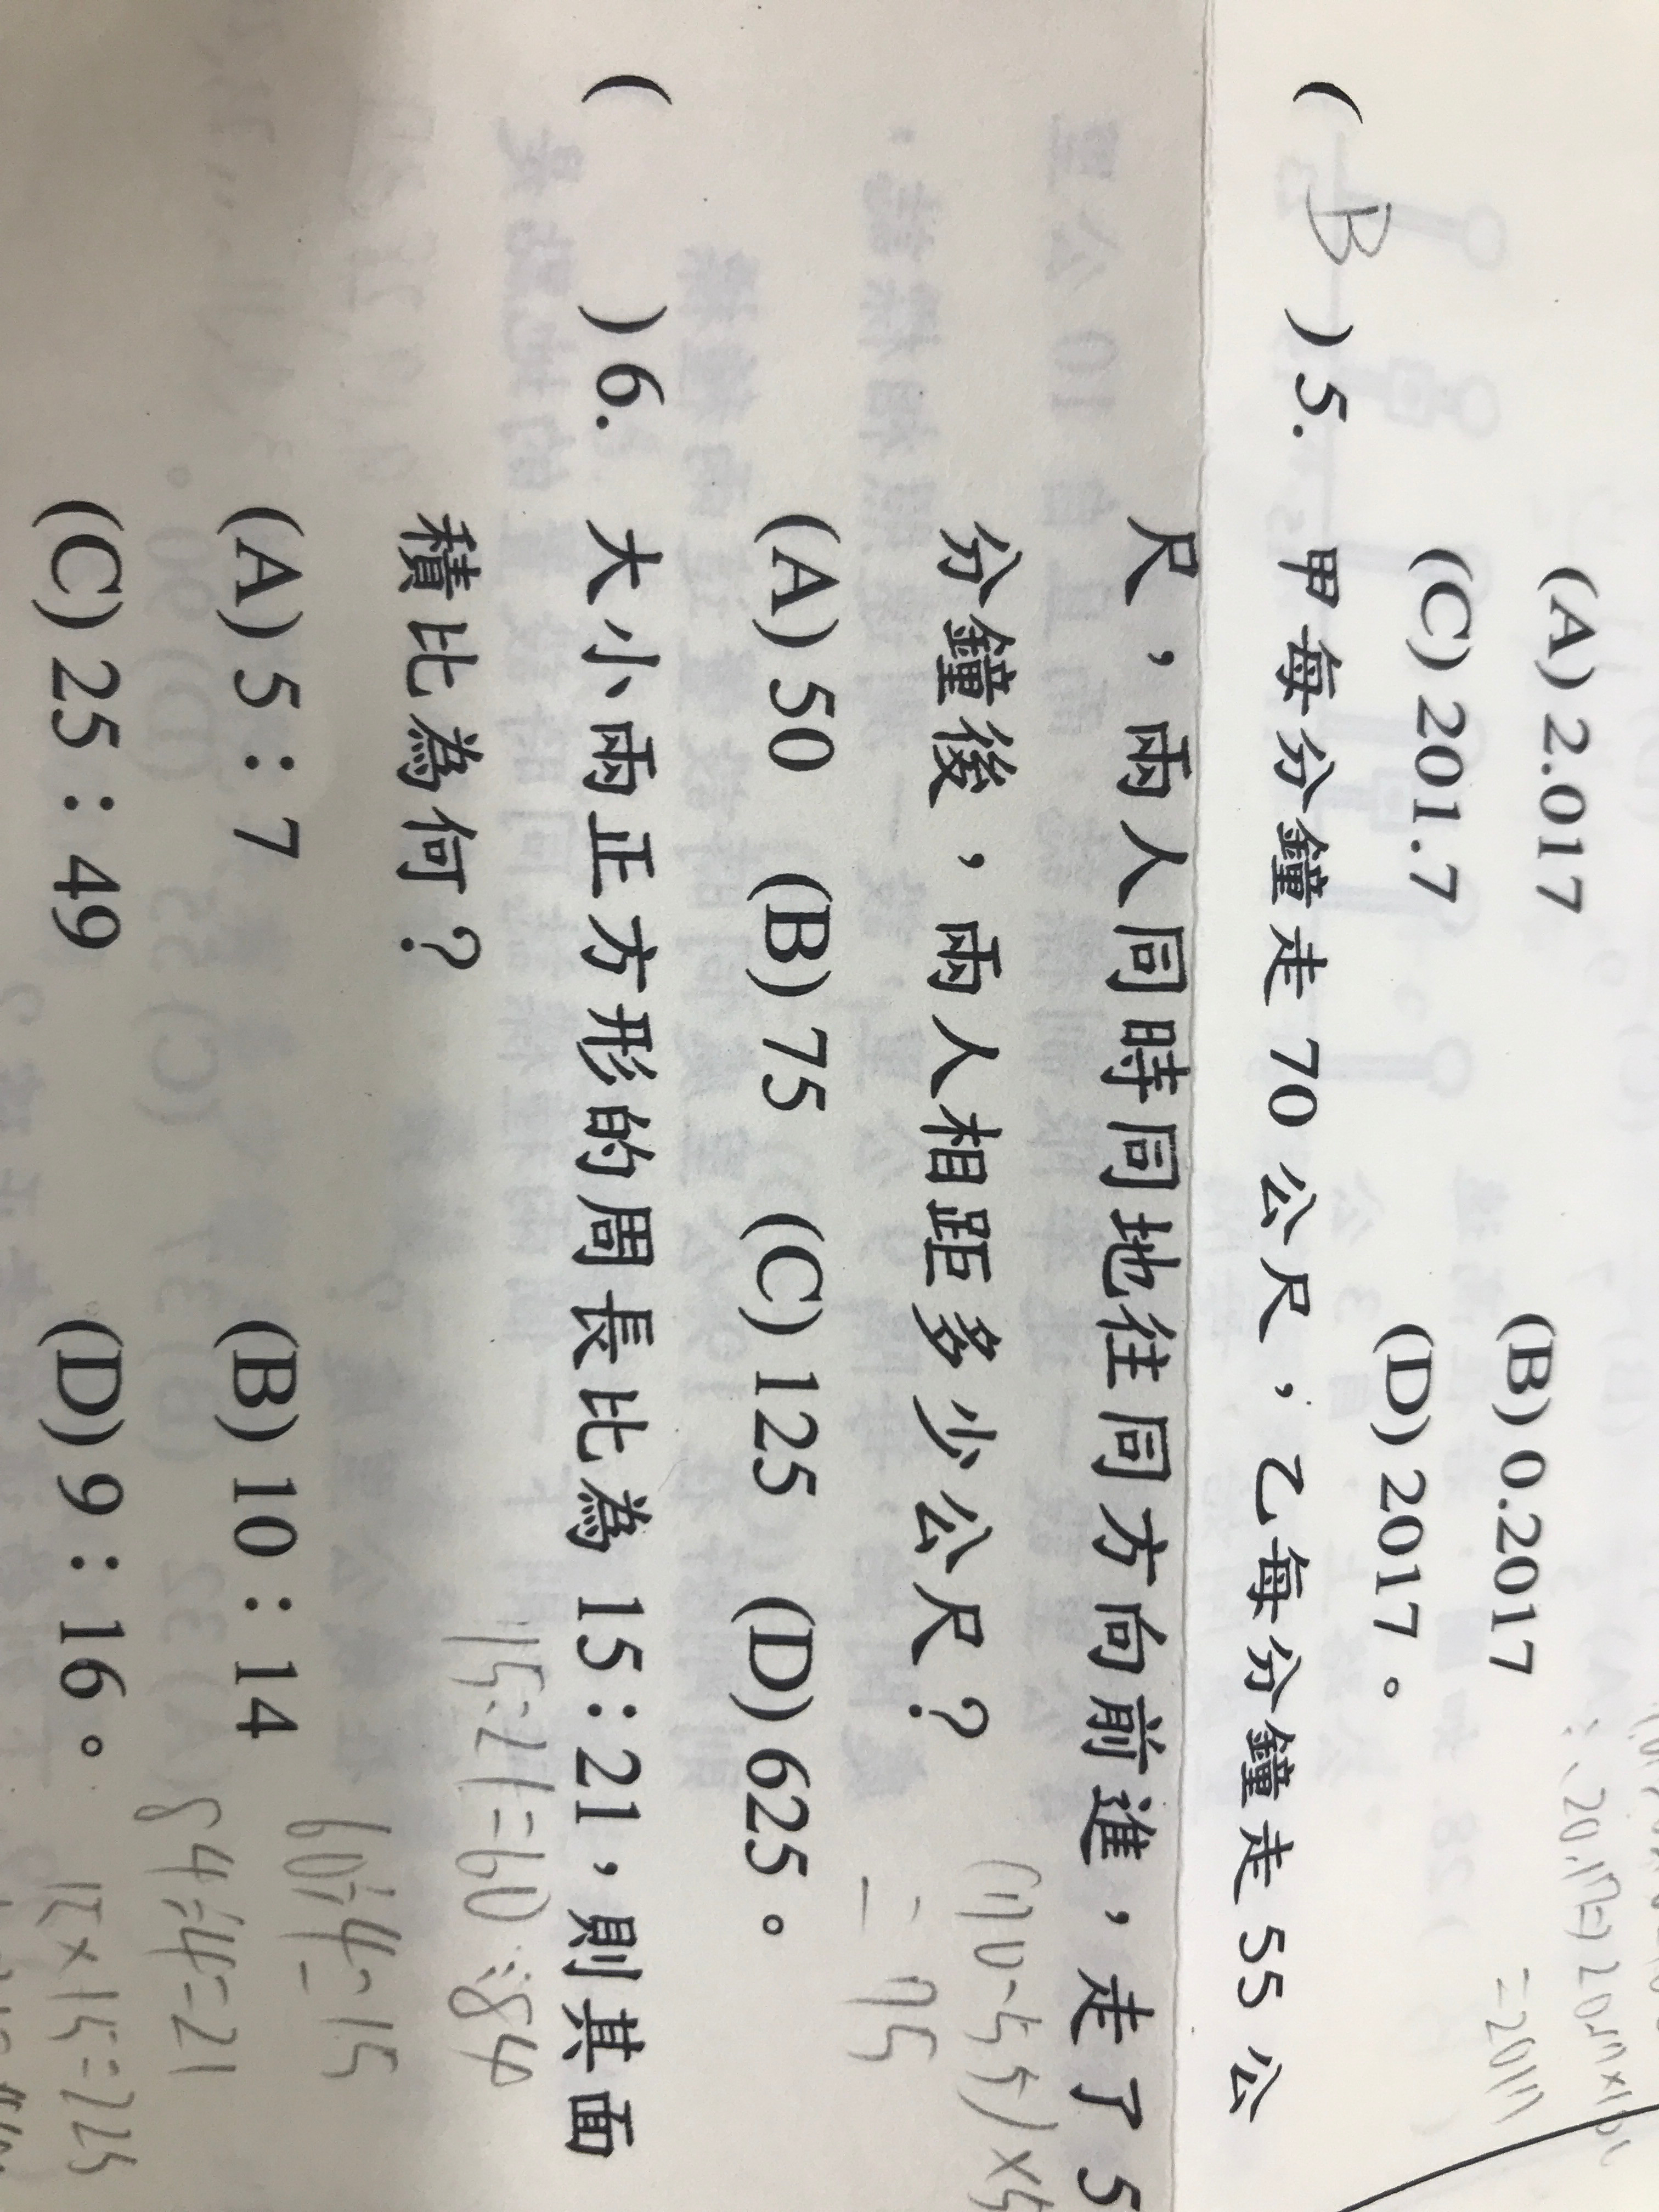 (A) 2.017 (B) 0.2017
(C) 201.7 (D) 2017。
( B ) 5. 甲每分鐘走 70 公尺，乙每分鐘走 55 公
尺，兩人同時同地往同方向前進，走了 5
分鐘後，兩人相距多少公尺？
(70-55)×5
= 75
(A) 50 (B) 75 (C) 125 (D) 625。
( ) 6. 大小兩正方形的周長比為 15：21，則其面
積比為何？
15:21=60:84
(A) 5：7 (B) 10：14
60÷4=15
84÷4=21
(C) 25：49 (D) 9：16。
15×15=225